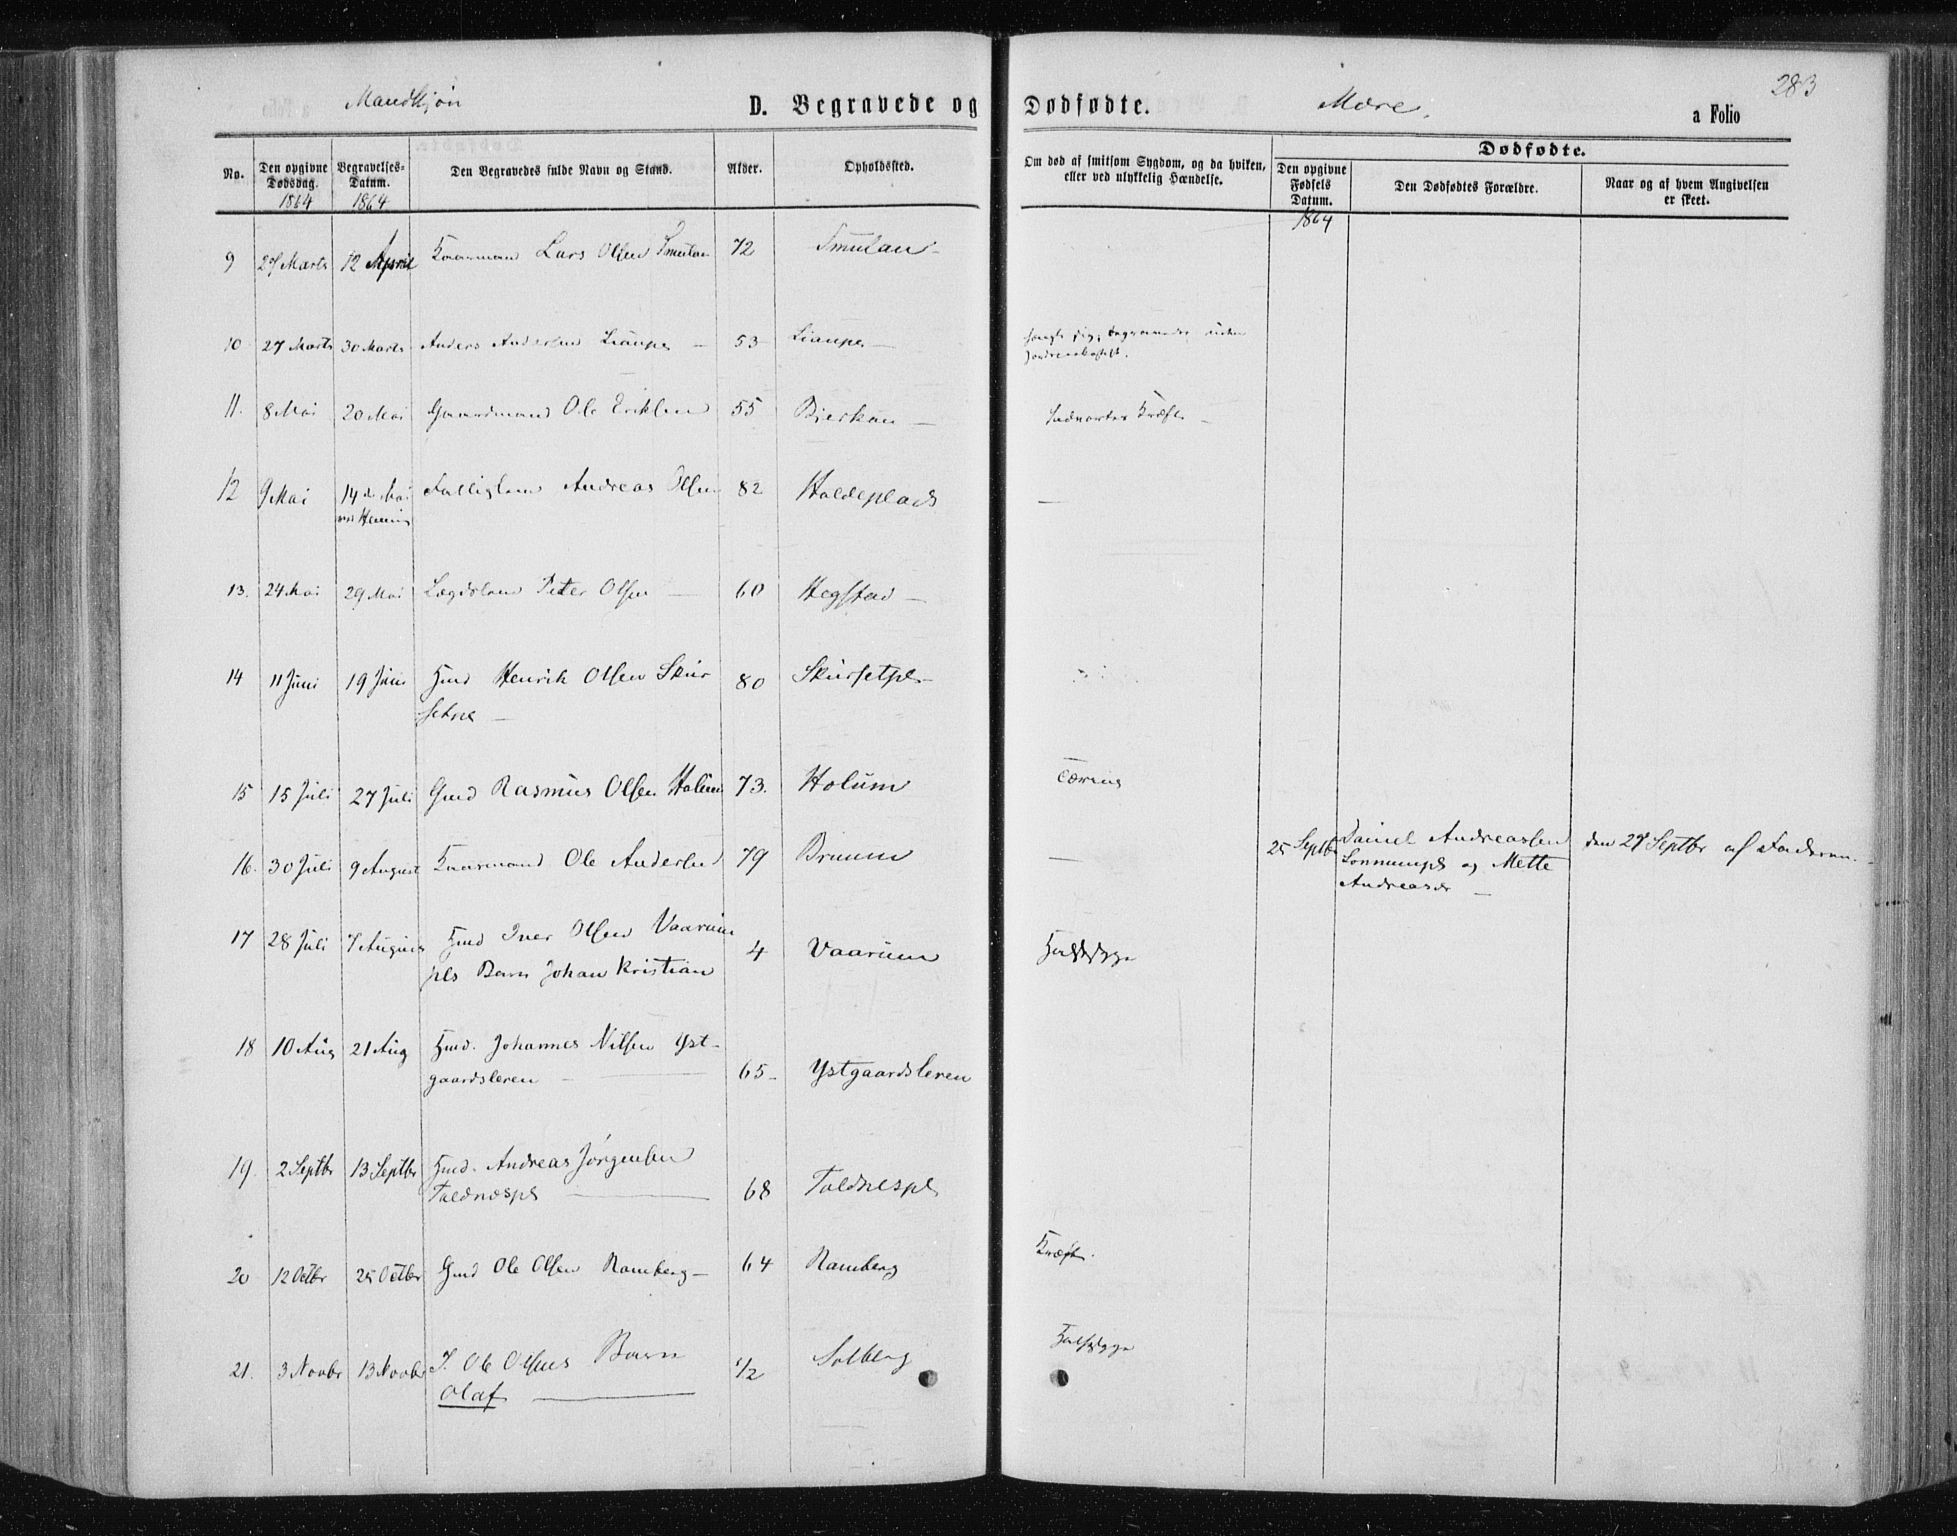 Mandkjøn D. Begravede og Dødfødte. Mære. a Folio 283
No. Den opgivne Dødsdag. Begravelses-Datum. Den Begravedes fulde Navn og Stand. Alder. Opholdssted. Om død af smitsom Sygdom, og da hvilken, eller ved ulykkelig Hændelse. Dødfødte.
Den opgivne Fødsels Datum. Den Dødfødtes Forældre. Naar og af hvem Angivelsen er skeet.
1864 1864 1864
9 27 Marts 12 April Kaarmand Lars Olsen Smulan 72 Smulan
10 27 Marts 30 Marts Anders Andersen 53 hængte sig, begravedes uden
11. 8 Mai 20 Mai Gaardmand Ole Eriksen 55 Bjerkan Indvortes Kræft
12 9 Mai 14de Mai Fattiglem Andreas Olsen 82 Haldeplads
13. 24 Mai 29 Mai Lægdslem Peter Olsen 60 Hegstad
14 11 Juni 19 Juni Hmd Henrik Olsen Skur
setpl 80 Skursetpl
15 15 Juli 27 Juli Gmd Rasmus Olsen Holum 73. Holum Tæring
16. 30 Juli 9 August Kaarmand Ole Andersen 79 Bruum
25 Septbr Daniel Andreassen den 29 Septbr af Faderen
Sonnumpl og Mette
Andreasdr
17 28 Juli 7 August Hmd Iver Olsen Vaarum
pls Barn Johan Kristian 4 Vaarum Halssyge
18 10 Aug 21 Aug Hmd. Johannes Nilsen Yst-
gaardsleren 65 Ystgaardsleren
19. 2 Septbr 13 Septbr Hmd. Andreas Jørgensen
Toldnæspl 68 Toldnespl
20 12 Octbr 25 Octbr Gmd Ole Olsen Ramberg 64 Ramberg Kræft.
21. 3 Novbr 13 Novbr I. Ole Olsens Barn
Olaf 1/2 Solberg Halssyge